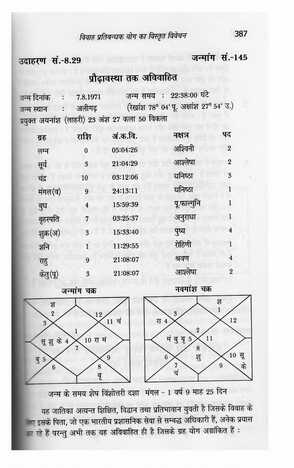 विवाह प्रतिबन्धक योग का विस्तृत विवेचन 387
उदाहरण सं.-8.29 जन्मांग सं.-145
प्रौढ़ावस्था तक अविवाहित
जन्म दिनांक : 7.8.1971 जन्म समय : 22:38:00 घंटे
जन्म स्थान : अलीगढ़ (रेखांश 78° 04' पू. अक्षांश 27° 54' उ.)
प्रयुक्त अयनांश (लाहरी) 23 अंश 27 कला 50 विकला
ग्रह राशि अं.क.वि. नक्षत्र पद
लग्न 0 05:04:26 अश्विनी 2
सूर्य 3 21:04:29 आश्लेषा 2
चंद्र 10 03:12:06 धनिष्ठा 3
मंगल(व) 9 24:13:11 धनिष्ठा 1
बुध 4 15:59:39 पू.फाल्गुनि 1
बृहस्पति 7 03:25:37 अनुराधा 1
शुक्र(अ) 3 15:33:40 पुष्य 4
शनि 1 11:29:55 रोहिणी 1
राहु 9 21:08:07 श्रवण 4
केतु(पू) 3 21:08:07 आश्लेषा 2
जन्मांग चक्र नवमांश चक्र
श
2
3
12
11 चं
1
सू शु के 4
10 रा मं
7
बु 5
6
8
बृ
9
श
3
2
12
रा 4
1
11
मं बु बृ 5
8
शु
6
7
चं
9
10 सू
के
जन्म के समय शेष विंशोत्तरी दशा मंगल - 1 वर्ष 9 माह 25 दिन
यह जातिका अत्यन्त शिक्षित, विद्वान तथा प्रतिभावान युवती है जिसके विवाह के
लिए इसके पिता, जो एक भारतीय प्रशासनिक सेवा से सम्बद्ध अधिकारी हैं, अनेक प्रयास
कर रहे हैं परन्तु अभी तक यह अविवाहित ही है जिसके ग्रह योग अग्रांकित हैं :